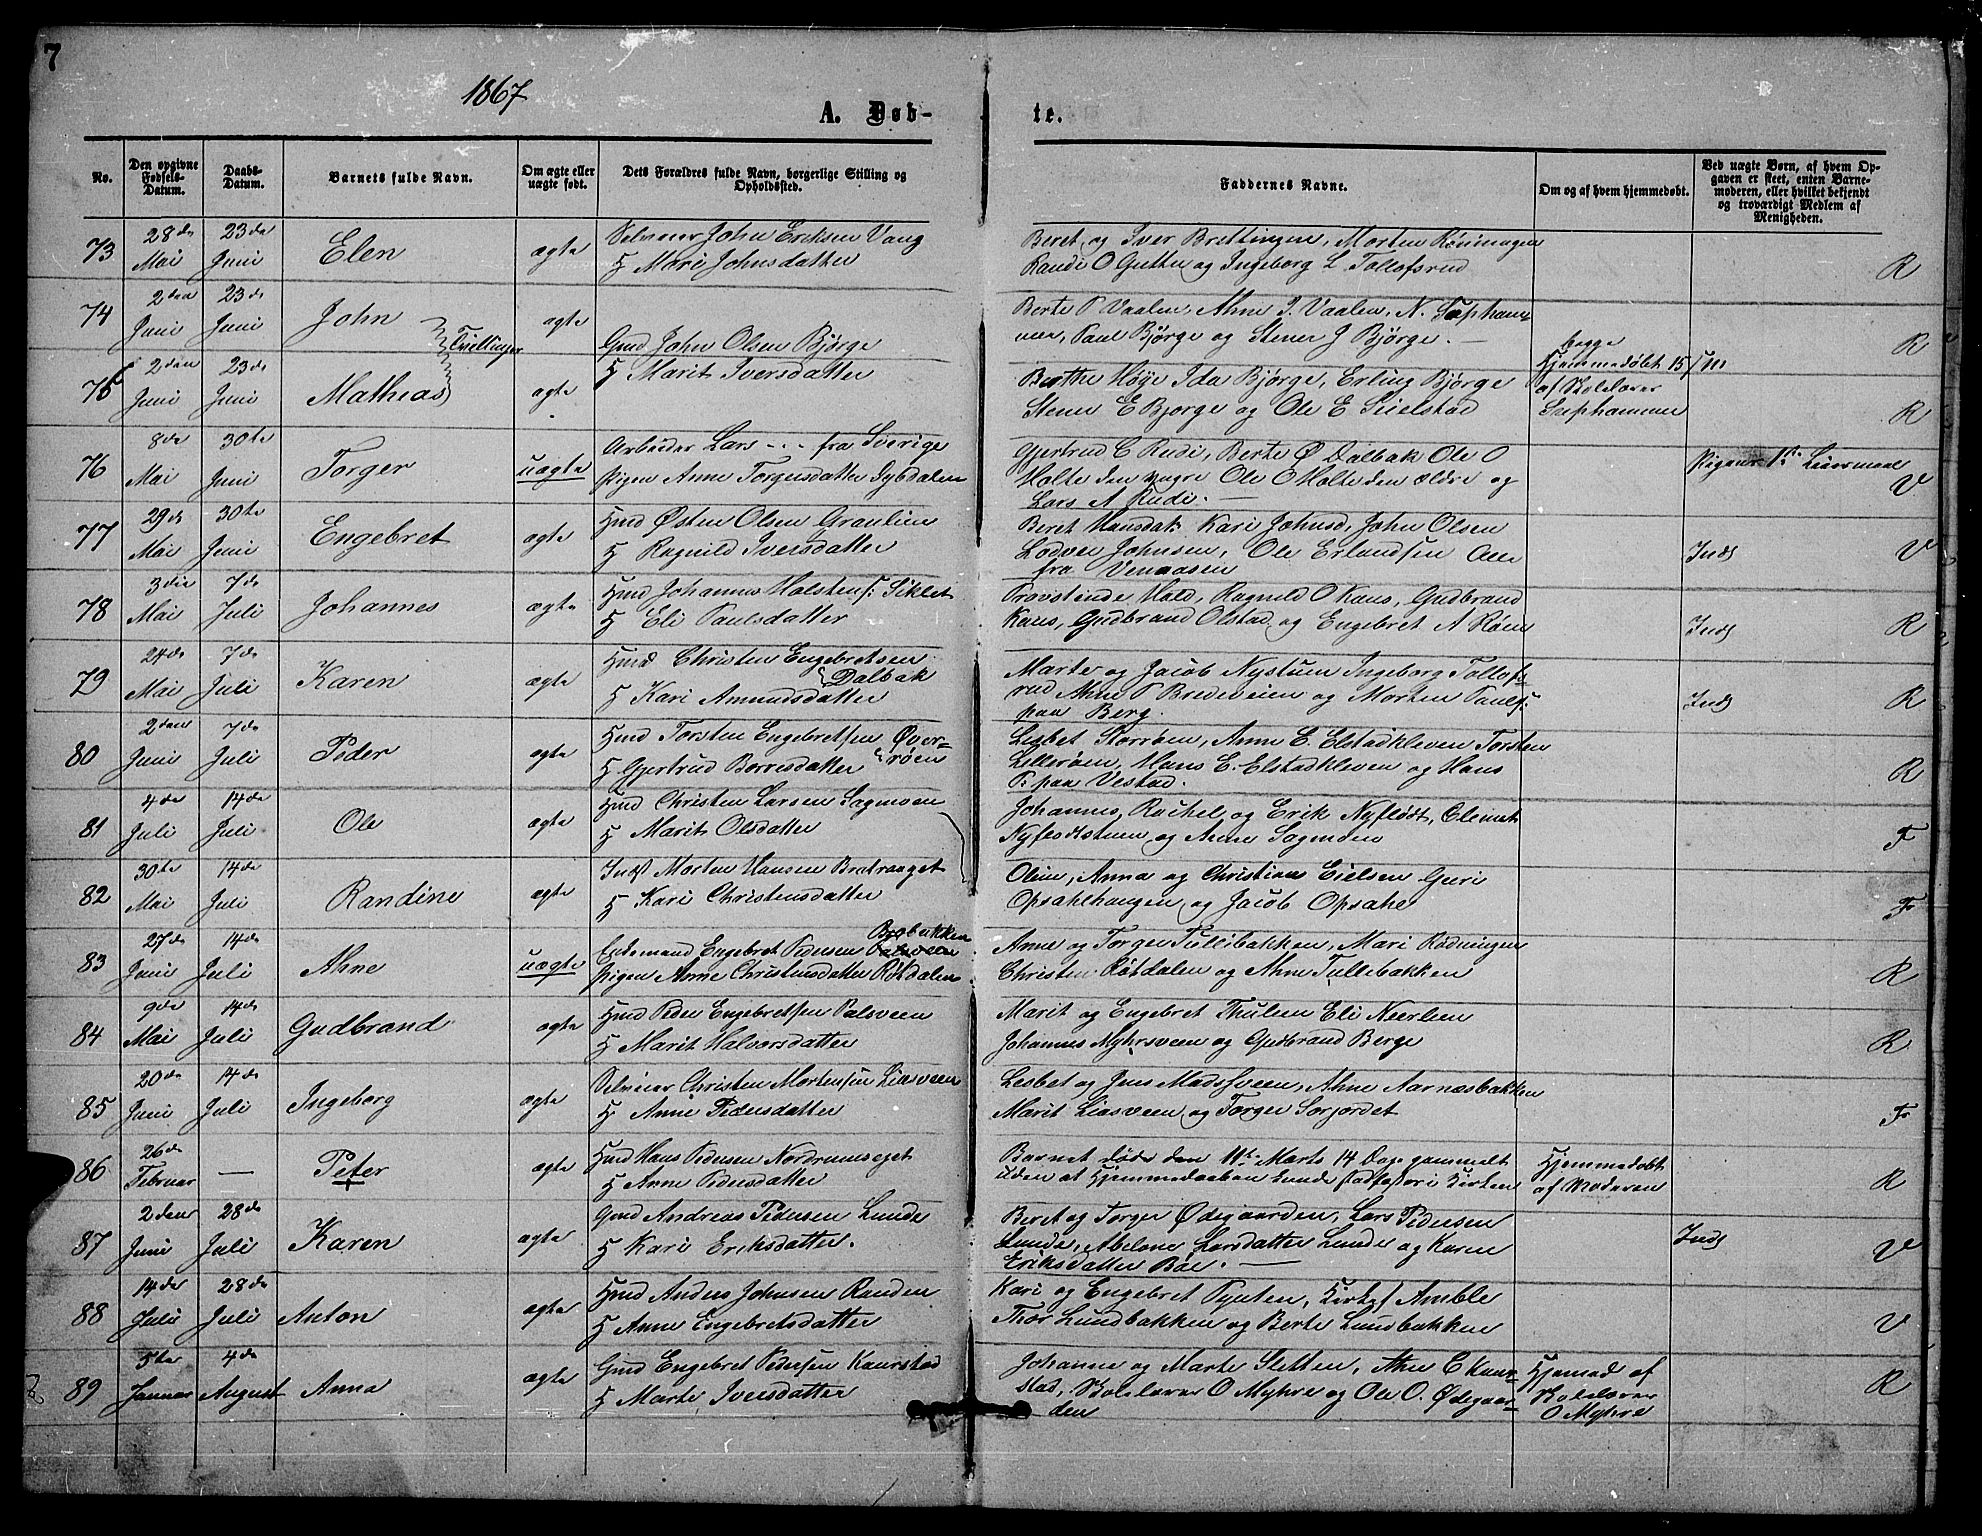 7
1867
A. Døb-
te.
No.
Den opgivne Fødsels-Datum.
Daabs-Datum.
Barnets fulde Navn.
Om ægte eller uægte født.
Dets Forældres fulde Navn, borgerlige Stilling og Opholdssted.
Faddernes Navne.
Om og af hvem hjemmedøbt.
Ved uægte Børn, af hvem Opgaven er skeet, enten Barnemoderen, eller hvilket bekjendt og troværdigt Medlem af Menigheden.
73 28de Mai 23de Juni Elen ægte
Selveier John Eriksen Vang
H Mari Johnsdatter
Beret og Iver Brettingen, Morten
Randi O Gutter og Ingeborg L. Tollofsrud
R
74 2den Juni 23de Juni John ægte
Tvillinger
Gmd John Olsen Bjørge
H Marit Iversdatter
Berte P Vaalen, Ahne J. Vaalen, N.
Paul Bjørge og Stener J Bjørge.
R
75 2den Juni 23de Juni Mathias ægte
Berthe Høye Ida Bjørge, Erling Bjørge
Stener E Bjørge og Ole E Seielstad
begge
Hjemmedøbt 15/
af Skolelærer
R
76 8de Mai 30te Juni Torger uægte
Arbeider Lars - - - fra Sverige
Pigen Anne Torgersdatter
Gjertrud C Rudi, Berte Ø Dalbak Ole O
Holte den yngre Ole O Holte den ældre og
Lars A Rudi.
Pigens 1ste Leiermaal
V
77 29de Mai 30te Juni Engebret ægte
Hmd Østen Olsen Graulien
H Ragnild Iversdatter
Beret Hansdat. Kari Johnsd, John Olsen
Lodver Johnsen, Ole Erlandsen Alle
fra Venaasen
Inds
V
78 3die Mai 7de Juli Johannes ægte
Hmd Johannes Halstens: Siklet
H Eli Paulsdatter
Provstinde Hald, Ragnild O Kaus, Gudbrand
Kaus, Gudbrand Olstad og Engebret A Røen
Inds
R
79 24de Mai 7de Juli Karen ægte
Hmd Christen Engebretsen
Dalbak
H Kari Amundsdatter
Marte og Jacob Nystuen Ingeborg Tollofs-
rud Ahne P Bredeveien og Morten Pauls:
paa Berg.
Inds
R
80 2den Juni 7de Juli Peder ægte
Hmd Torsten Engebretsen Øver-
røen
H Gjertrud Borresdatter
Lisbet Storrøen, Anne E. Elstadkleven Torsten
Lillerøen, Hans E. Elstadkleven og Hans
P. paa Vestad.
R
81 4de Juli 14de Juli Ole ægte
Hmd Christen Larsen Sagmoen
H Marit Olsdatter
Johannes, Rachel og Erik Nyflødt, Clemet
Nyflodtstuen og Anne Sagmoen
F
82 30te Mai 14de Juli Randine ægte
Inds Morten Hansen
H Kari Christensdatter
Oline, Anna og Christian Eielsen Guri
Opsahlhaugen og Jacob Opsahl
F
83 27de Juni 14de Juli Ahne uægte
Enkemand Engebret Pedersen Bakken
Pigen Anne Christensdatter Røtdalen
Anne og Torger Tullibakken, Mari Rødningen
Christen Røtdalen og Ahne Tullebakken
R
84 9de Mai 14de Juli Gudbrand ægte
Hmd Peder Engebretsen Valsveen
H Marit Halvorsdatter
Marit og Engebret Thulien Eli Neerlien
Johannes Myhrsveen og Gudbrand Berge
R
85 20de Juni 14de Juli Ingeborg ægte
Selveier Christen Mortensen Liasveen
H Anne Pedersdatter
Lisbet og Jens Madssveen, Ahne Aarnæsbakken
Marit Liasveen og Torger Sorjordet
F
86 26de Februar — Peter ægte
Hmd Hans Pedersen Nordrumseget
H Anne Pedersdatter
Barnet døde den 11te Marts 14 Dage gammelt
uden at Hjemmedaaben kunde stadfæstes i Kirken
Hjemmedøbt
af Moderen
R
87 2den Juni 28de Juli Karen ægte
Gmd Andreas Pedersen Lunde
H Kari Eriksdatter.
Beret og Torger Ødegaarden, Lars Pedersen
Lunde, Abelone Larsdatter Lunde og Karen
Eriksdatter Bøe.
Inds
V
88 14de Juli 28de Juli Anton ægte
Hmd Anders Johnsen Randen
H Anne Engebretsdatter
Kari og Engebret Pynten, Kirkes: Amble
Thor Lundbakken og Berte Lundbakken
V
89 5te Januar 4de August Anna ægte
Gmd Engebret Pedersen Kaurstad
H Marte Iversdatter
Johanne og Marte Sletten, Ahne C Kaur-
stad, Skolelærer O Myhre og Ole O. Ødegaar-
den
Hjemmed af
Skolelærer
O Myhre
R